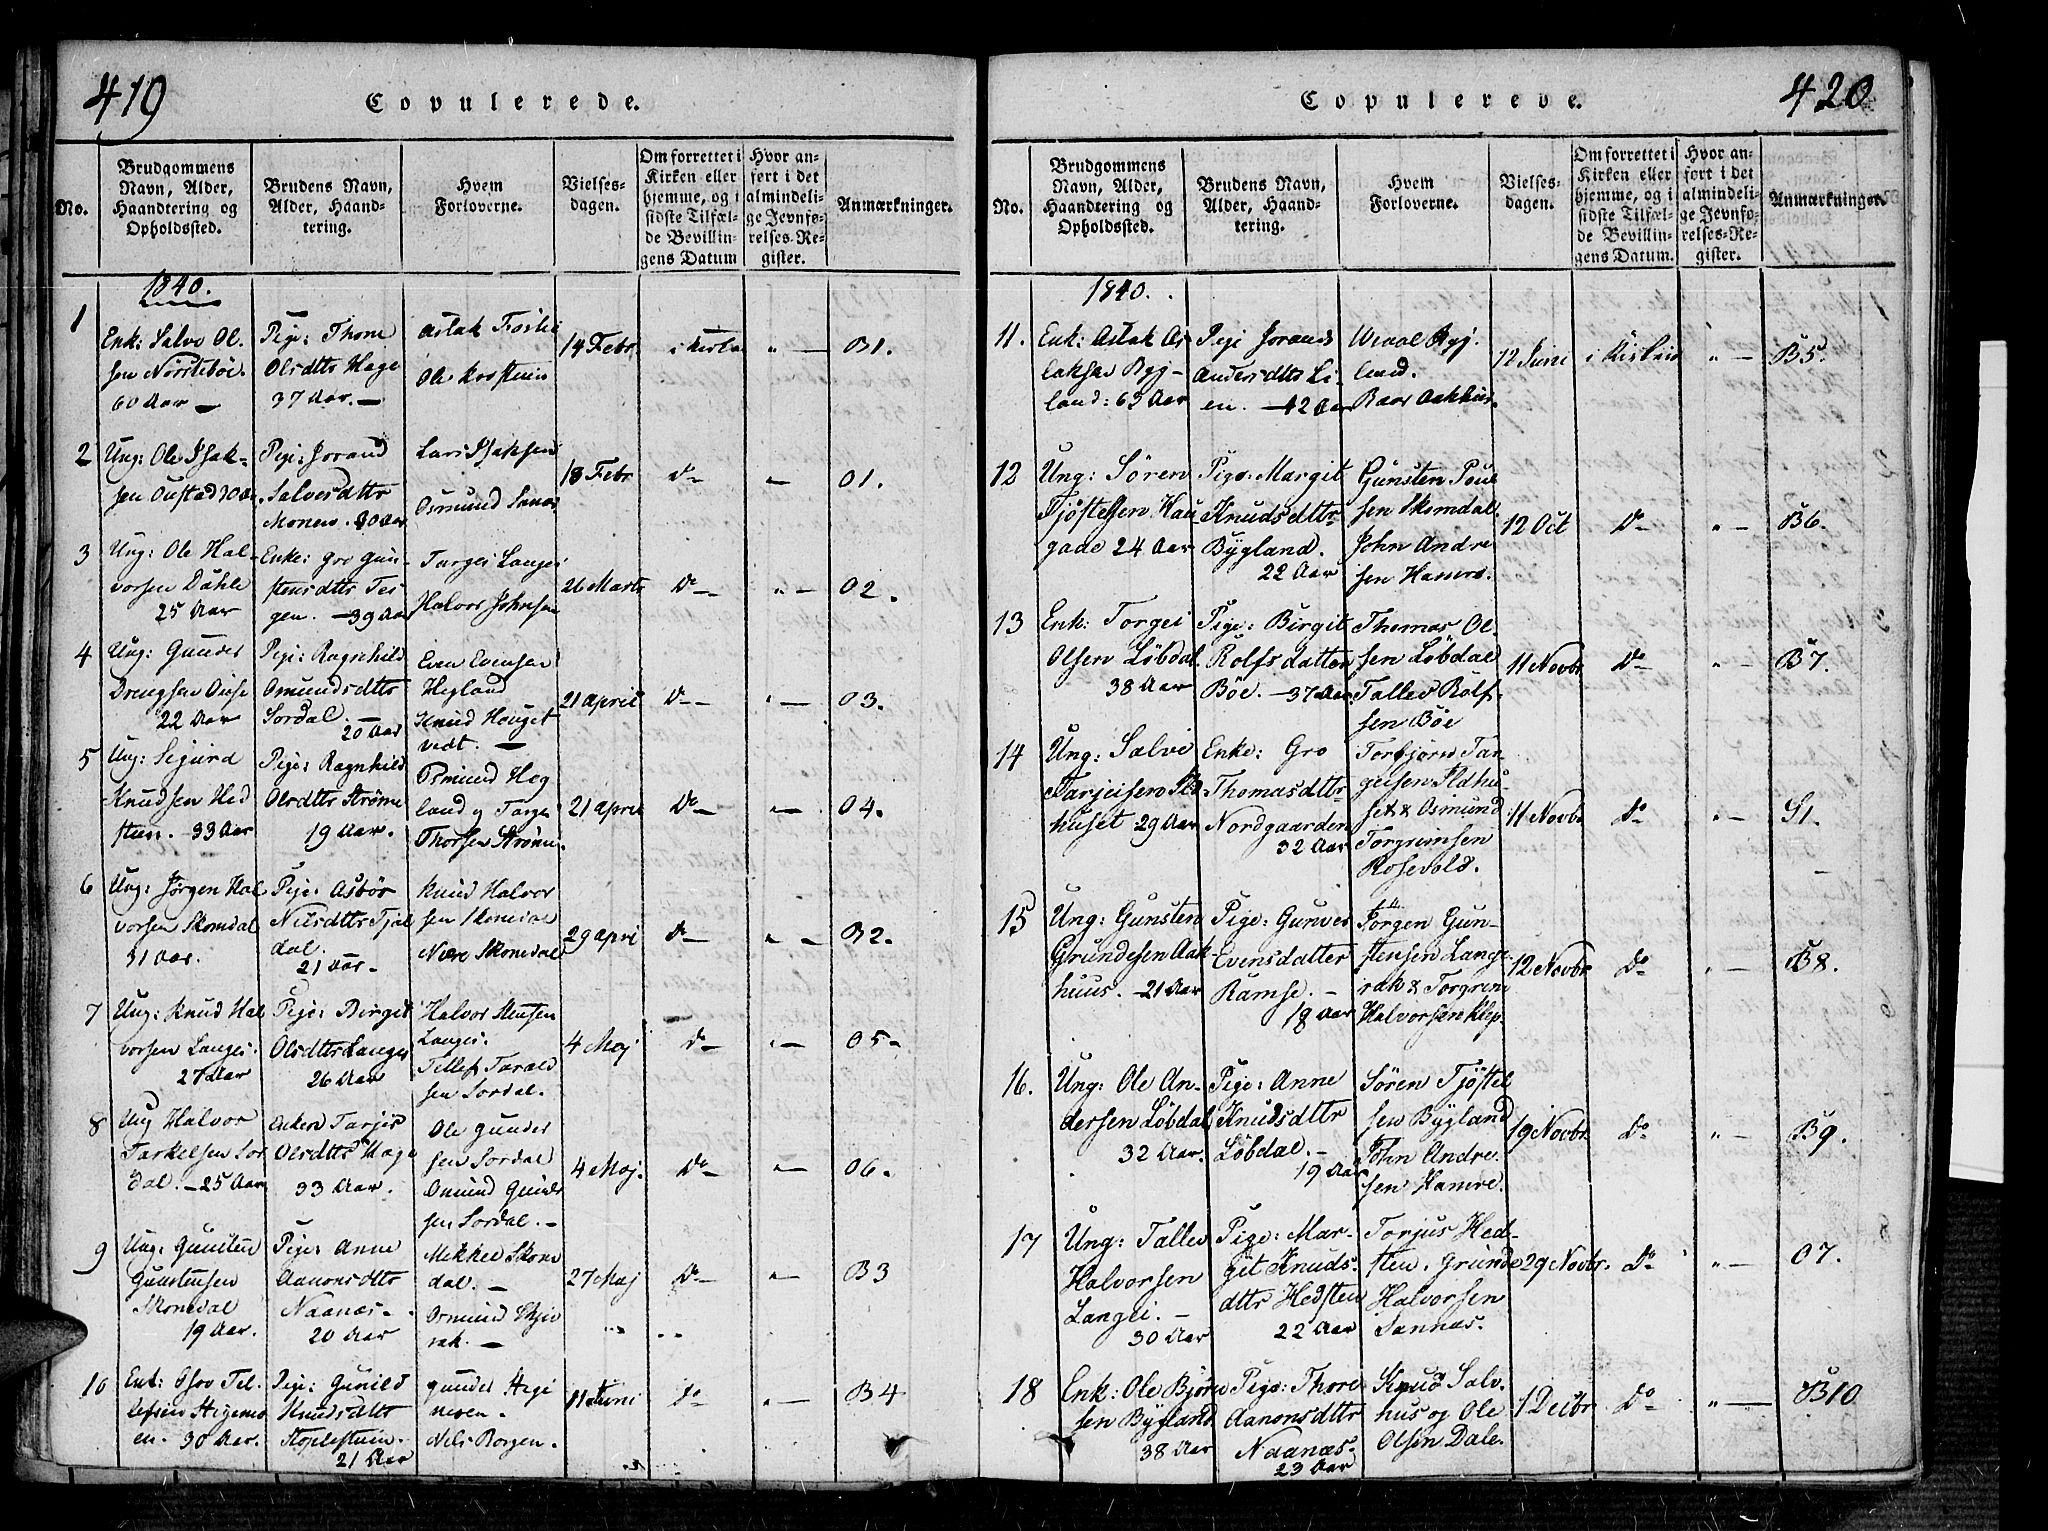 419
Copulerede.
No.
Brudgommens Navn, Alder, Haandtering og Opholdssted.
Brudens Navn, Alder, Haandtering.
Hvem Forloverne.
Vielsesdagen.
Om forrettet i Kirken eller hjemme, og i sidste Tilfælde Bevillingens Datum
Hvor anført i det almindelige Jevnførelses-Register.
Anmærkninger.
1840.
1
Enk: Salve Ol-
sen Norstebøe.
60 Aar —
Pige: Thone
Olsdttr Hage
37 Aar. —
Aslak
Ole
14 Febr.
i Kirken
„ —
B1.
2
Ung: Ole Isak-
sen Oustad 30 Aar
Pige: Jorand
Salvesdttr
Monen. 30 Aar
Lars Isaksen
Osmund Sanæs
18 Febr
Do
„ —
O1.
3
Ung: Ole Hal-
vorsen Dahle
25 Aar
Enke: Gro Gun-
stensdttr Tei-
gen. — 39 Aar
Targei Langei
Halvor Johnsen
26 Marts
Do —
„ —
O2.
4
Ung: Gunder
Drengsen
22 Aar
Pige: Ragnhild
Osmundsdttr
Sordal. —
20 Aar
Even Evensen
Hegland
Knud Houget
vedt. —
21 April
Do —
„ —
O3.
5
Ung: Sigurd
Knudsen Hed
sten. 33 Aar
Pige: Ragnhild
Olsdttr Strømme
19 Aar.
Osmund Heg
land og Targei
Thorsen Strømme.
21 April
Do —
„ —
O4.
6
Ung: Jørgen Hal
vorsen Skomdal
31 Aar.
Pige: Asbør
Nilsdttr Tjal
dal.
21 Aar.
Knud Halvor
sen Skomedal
Skomedal
29 April
Do —
„ —
B2.
7
Ung: Knud Hal
vorsen Langei.
27 Aar
Pige: Birgit
Olsdttr Langei
26 Aar
Halvor Stensen
Langei.
Tellef Tarald
sen Sordal.
4 Maj
Do —
„ —
O5 —
8
Ung Halvor
Tarkelsen Sor
dal. — 25 Aar
Enken Tarjer
Olsdttr Hage
33 Aar.
Ole Gunder
sen Sordal
Osmund Gunder
sen Sordal. —
4 Maj.
Do —
„ —
O6.
9
Ung: Gunsten
Gunstensen
Skomedal
19 Aar.
Pige: Anne
Aanonsdttr
Naanæs.
20 Aar
Mikkel Skome
dal. —
Osmund Skjev
rak. —
27 Maj
Do —
„ —
B3
10
Enk: Osov Tel-
lefsen Hegemo
en. 30 Aar.
Pige: Gunild
Knudsdttr
Stoplesteen.
21 Aar
Gunder Hege
moen.
Nels Borgen.
11 Juni
Do —
„ —
B4
420
Copulerede.
No.
Brudgommens Navn, Alder, Haandtering og Opholdssted.
Brudens Navn, Alder, Haandtering.
Hvem Forloverne.
Vielsesdagen.
Om forrettet i Kirken eller hjemme, og i sidste Tilfælde Bevillingens Datum.
Hvor anført i det almindelige Jevnførelses-Register.
Anmærkninger.
1840.
11.
Enk: Aslak As
laksen Byg-
land: 63 Aar
Pige Jorand
Andersdttr Li-
en. — 42 Aar
Byg-
land.
Aakhus.
12 Juni
i Kirken
„ —
B5.
12
Ung: Sören
Tjöstelsen Hau
gade 24 Aar
Pige: Margit
Knudsdttr
Bÿgland.
22 Aar
Gunsten Poul
sen Skomdal.
John Andre
sen Hamre.
12 Oct
Do
„ —
B6.
13
Enk: Torgei
Olsen Löbdal.
38 Aar
Pige: Birgit
Rolfsdatter
Böe. — 37 Aar
Thomas Ol-
sen Löbdal
Tallev Rolf-
sen Böe
11 Novbr
Do
„ —
B7.
14
Ung: Salve
Tarjeisen Ild
huset 29 Aar
Enke: Gro
Thomasdttr
Nordgaarden
32 Aar
Torbjörn Tar
geisen Ildhu-
set & Osmund
Torgrimsen
Rosevold.
11 Novbr
Do
„ —
S1.
15
Ung: Gunsten
Grundesen Aak
huus. — 21 Aar
Pige: Gunver
Evensdatter
Ramse. —
18 Aar
Jörgen Gun-
stensen Lange
rak & Torgrim
Halvorsen Klep.
12 Novbr
Do
„ —
B8.
16.
Ung: Ole An-
dersen Löbdal
32 Aar.
Pige: Anne
Knudsdttr
Löbdal. —
19 Aar
Sören Tjöstel
sen Bÿgland
John Andre
sen Hamre.
19 Novbr.
Do
„ —
B9.
17
Ung: Tallev
Halvorsen
Langei. —
30 Aar
Pige: Mar-
git Knuds-
dttr Hedsten
22 Aar
Torjus Hed-
sten, Grunde
Halvorsen
Sannæs.
29 Novbr.
Do
„ —
O7.
18
Enk: Ole Bjørn
sen Bÿgland
38 Aar
Pige: Thore
Aanonsdttr
Naanæs.
23 Aar
Knud Salv-
hus og Ole
Olsen Dale.
1 Decbr.
Do
„ —
B10